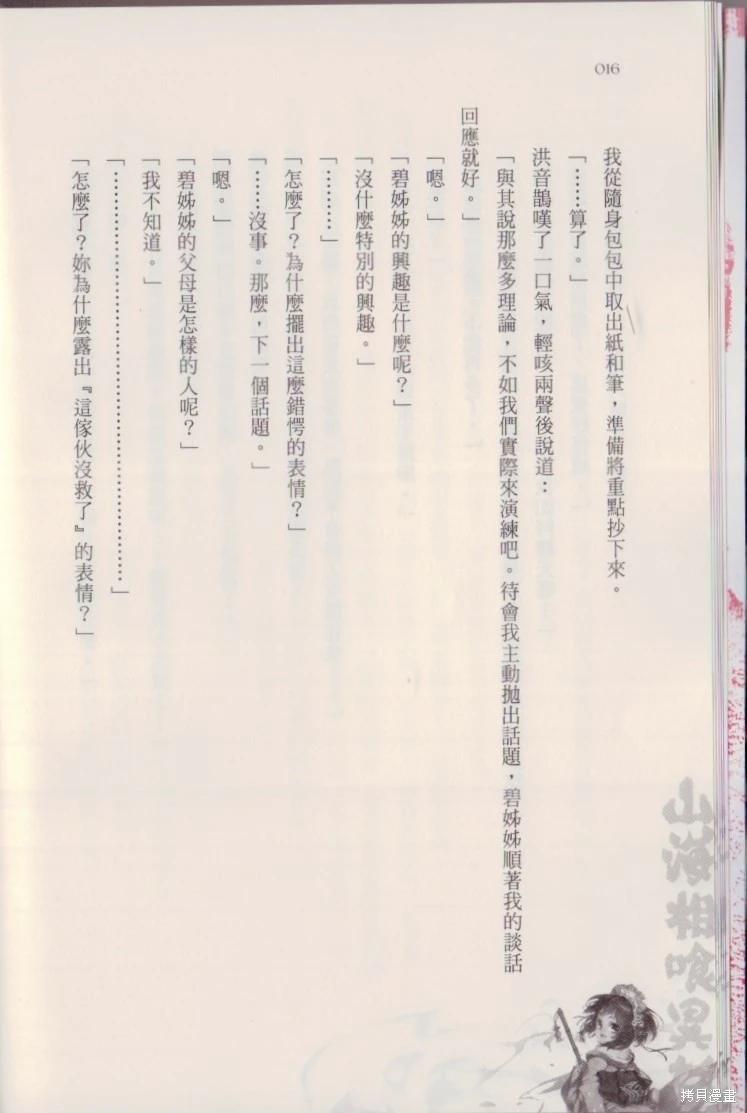 016
我從隨身包包中取出紙和筆，準備將重點抄下來。
「……算了。」
洪音鵲嘆了一口氣，輕咳兩聲後說道：
「與其說那麼多理論，不如我們實際來演練吧。待會我主動拋出話題，碧姊姊順著我的談話
回應就好。」
「嗯。」
「碧姊姊的興趣是什麼呢？」
「沒什麼特別的興趣。」
「………」
「怎麼了？為什麼擺出這麼錯愕的表情？」
「……沒事。那麼，下一個話題。」
「嗯。」
「碧姊姊的父母是怎樣的人呢？」
「我不知道。」
「………………………………………………」
「怎麼了？妳為什麼露出『這傢伙沒救了』的表情？」
山海相喰異
拷貝漫畫